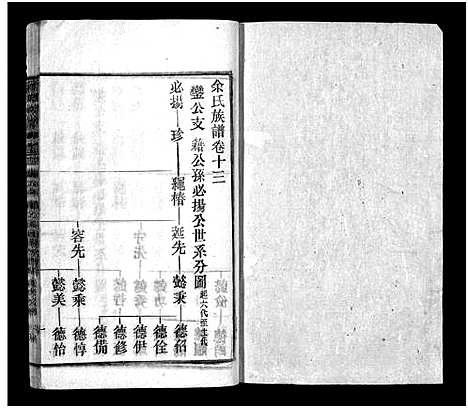 余氏族譜卷十三
鑾公支 籍公孫必揚公世系分圖 起六代至十一代
必揚 珍 繩椿 延先 懿秉 德紹
德佺
德伊
德修
德備
容先 懿乘 德惇
懿美 德怡